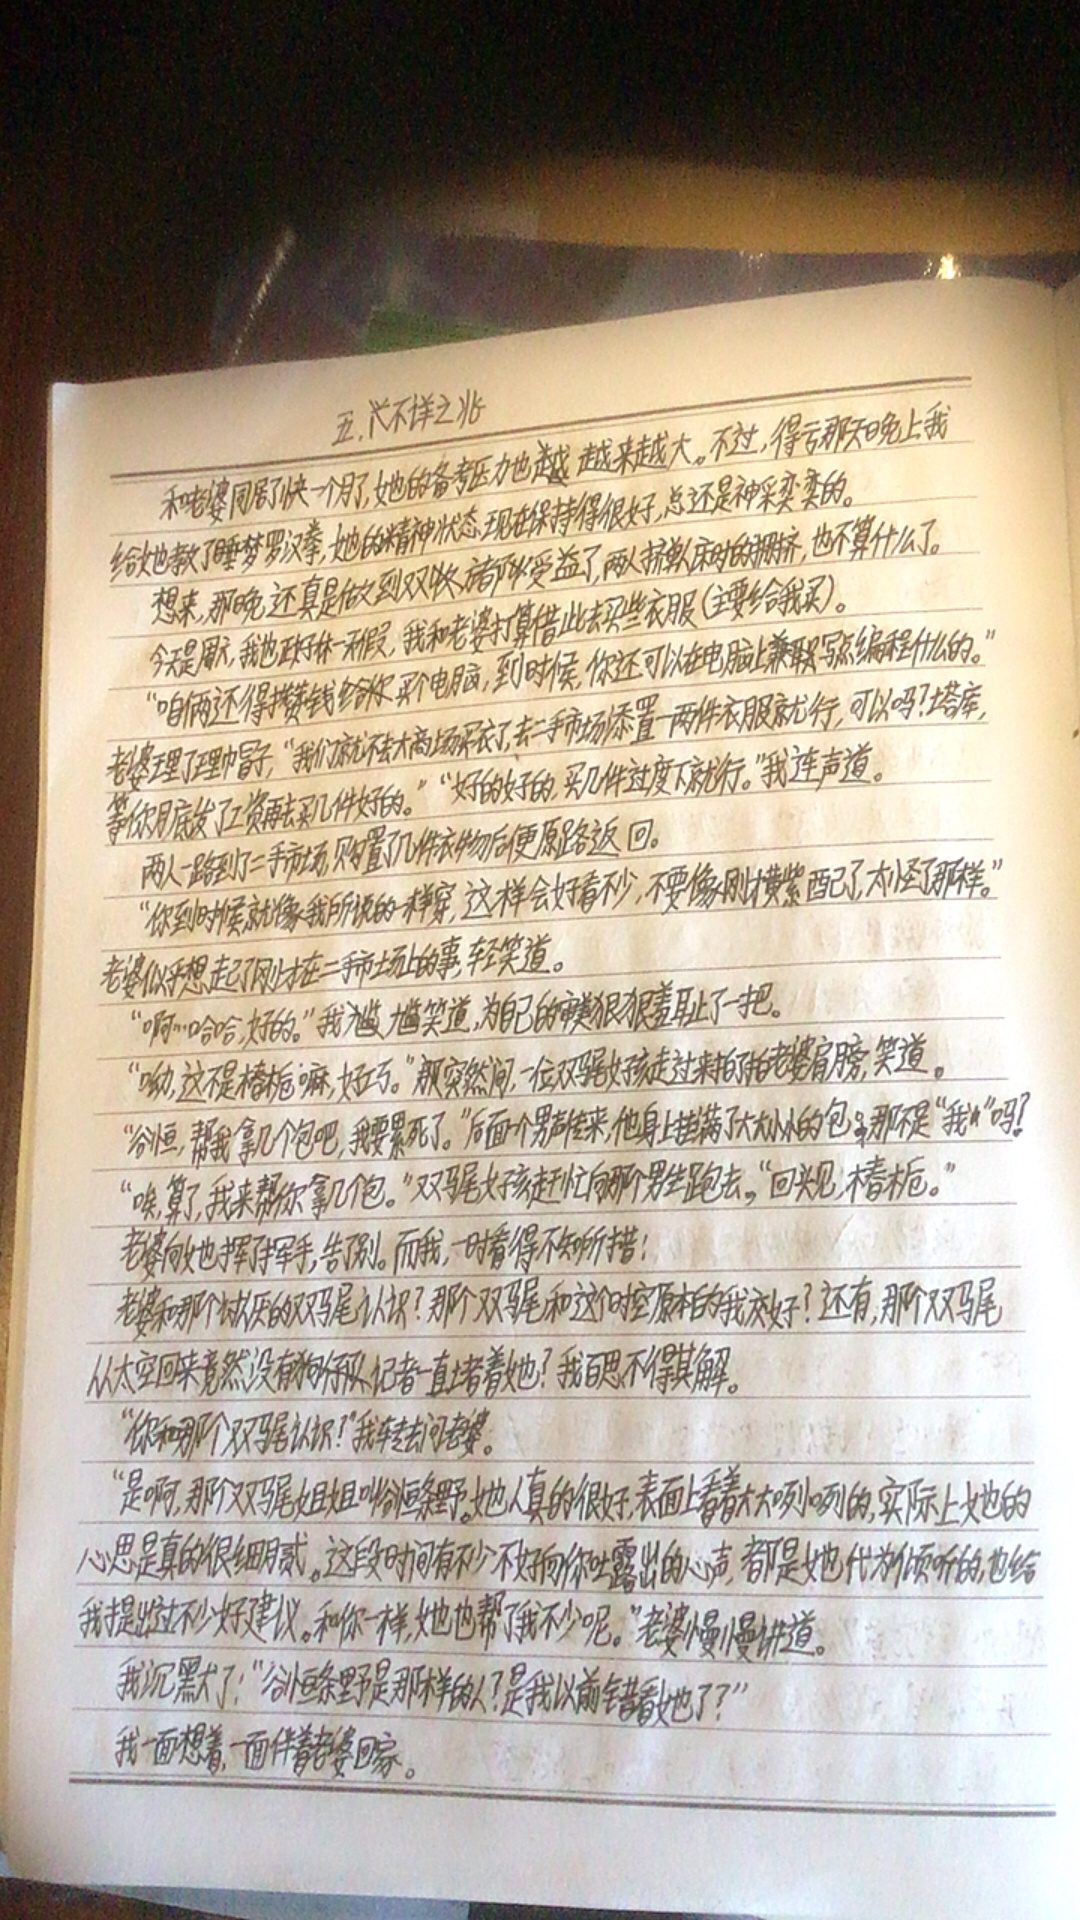 五、不详之兆
和老婆同居了快一个月了,她的备考压力也越 越来越大。不过,得亏那天晚上我
给她教了睡梦罗汉拳,她的精神状态现在保持得很好,总还是神采奕奕的。
想来,那晚还真是做到双收,都受益了,两人挤单人床时的拥挤,也不算什么了。
今天是周天,我也正好休一天假,我和老婆打算借此去买些衣服(主要给我买)。
“咱俩还得攒钱给你买个电脑,到时候,你还可以在电脑上兼职写点编程什么的。”
老婆理了理帽子,“我们就不去大商场买衣了,去二手市场添置一两件衣服就行,可以吗?塔库,
等你月底发了工资再去买几件好的。”“好的好的,买几件过度下就行。”我连声道。
两人一路到了二手市场,购置了几件衣物后便原路返回。
“你到时候就像我所说的一样穿,这样会好看不少,不要像刚才黄紫配了,太怪了那样。”
老婆似乎想起了刚才在二手市场上的事,轻笑道。
“啊…哈哈,好的。”我尴尬笑道,为自己的审美狠狠羞耻了一把。
“呦,这不是椿栀嘛,好巧。”那突然间,一位双马尾女孩走过来拍了拍老婆肩膀,笑道。
“谷恒,帮我拿几个包吧,我要累死了。”后面一个男声传来,他身上挂满了大大小小的包;那不是“我”吗?
“唉,算了,我来帮你拿几个包。”双马尾女孩赶忙向那个男生跑去,“回头见,椿栀。”
老婆向她挥了挥手,告了别。而我,一时看得不知所措!
老婆和那个讨厌的双马尾认识?那个双马尾和这个时空原本的我交好?还有,那个双马尾
从太空回来竟然没有狗仔队、记者一直堵着她?我百思不得其解。
“你和那个双马尾认识?”我转去问老婆。
“是啊,那个双马尾姐姐叫谷恒条野。她人真的很好,表面上看着大大咧咧的,实际上她的
心思是真的很细腻。这段时间有不少不好向你吐露出的心声,都是她代为倾听的,也给
我提出过不少好建议。和你一样,她也帮了我不少呢。”老婆慢慢讲道。
我沉默了:“谷恒条野是那样的人?是我以前错看她了?”
我一面想着,一面伴着老婆回家。